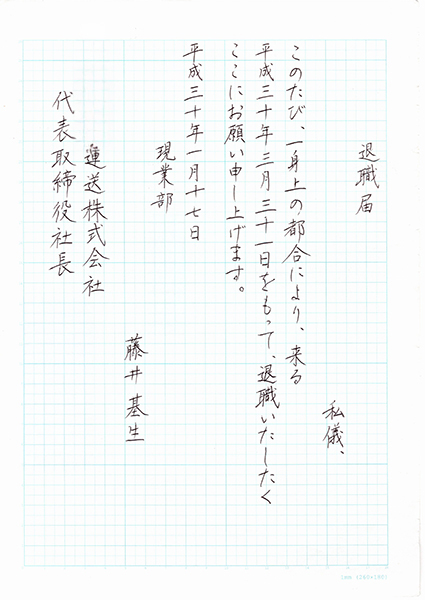 退職届
私儀、
このたび、一身上の都合により、来る
平成三十年三月三十一日をもって、退職いたしたく
ここにお願い申し上げます。
平成三十年一月十七日
現業部
藤井基生
運送株式会社
代表取締役社長
1mm (280×180)